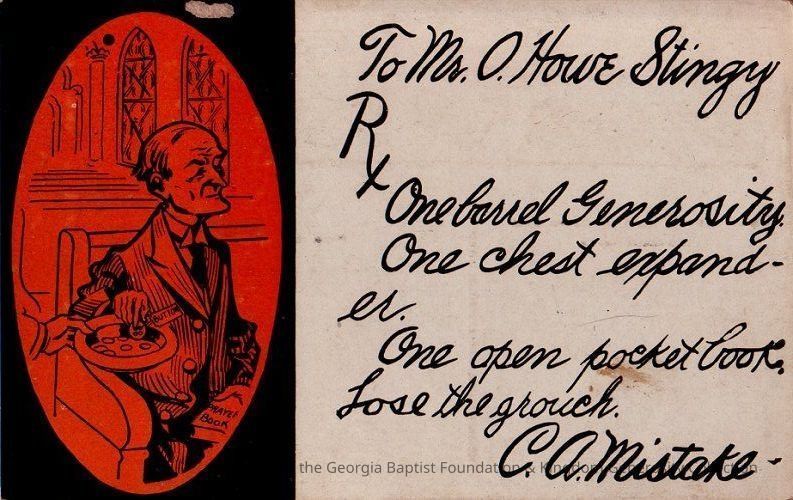 To Mr. O. Howe Stingy
Rx
One barrel Generosity.
One chest expand-
er.
One open pocket book.
Lose the grouch.
C. A. Mistake-
BUTTON
PRAYER
BOOK
the Georgia Baptist Foundation & Kingdom